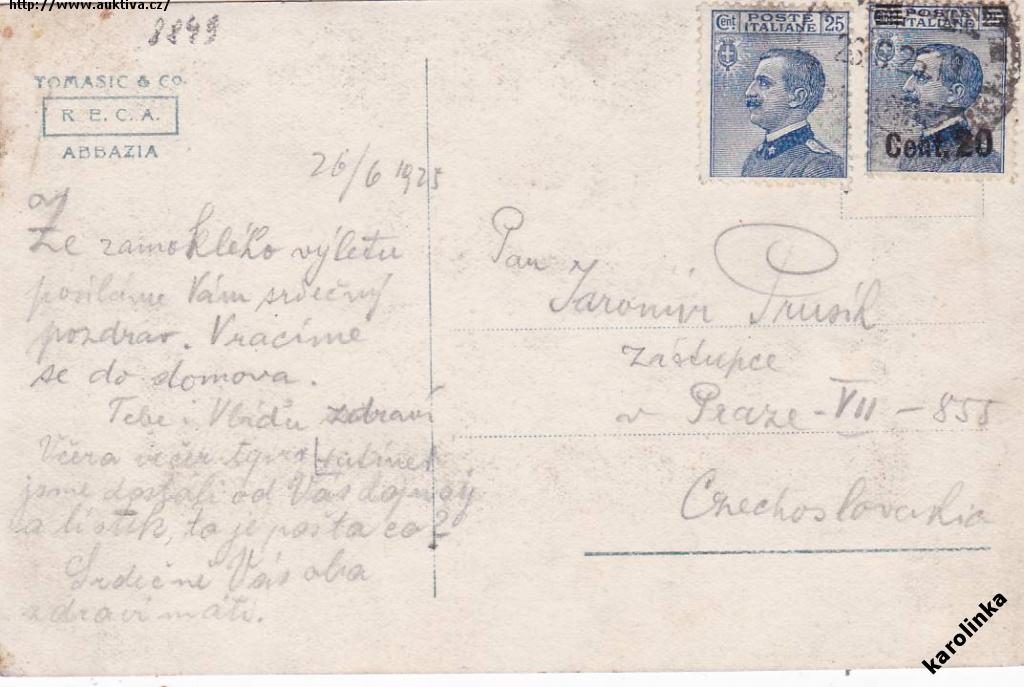 http://www.auktiva.cz/
8849
TOMASIC & CO.
R. E. C. A.
ABBAZIA
26/6 1925
Ze zamoklého výletu
posíláme Vám srdečný
pozdrav. Vracíme
se do domova.
Tebe i Vláďu zdraví
Včera večer
jsme dostali od Vás dopisy
a lístek, to je pošta co?
Srdečně Vás oba
zdraví máti.
Cent POSTE ITALIANE 25
POSTE ITALIANE
Cent. 20
Pan
Jaromír Prusík
zástupce
v Praze - VII - 855
Czechoslovakia
karolinka